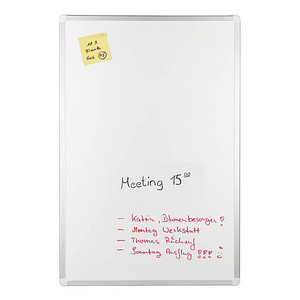 Meeting 15⁰⁰
– Katrin, Blumen besorgen !
– Montag Werkstatt
– Thomas Rückruf
– Sonntag Ausflug !!!